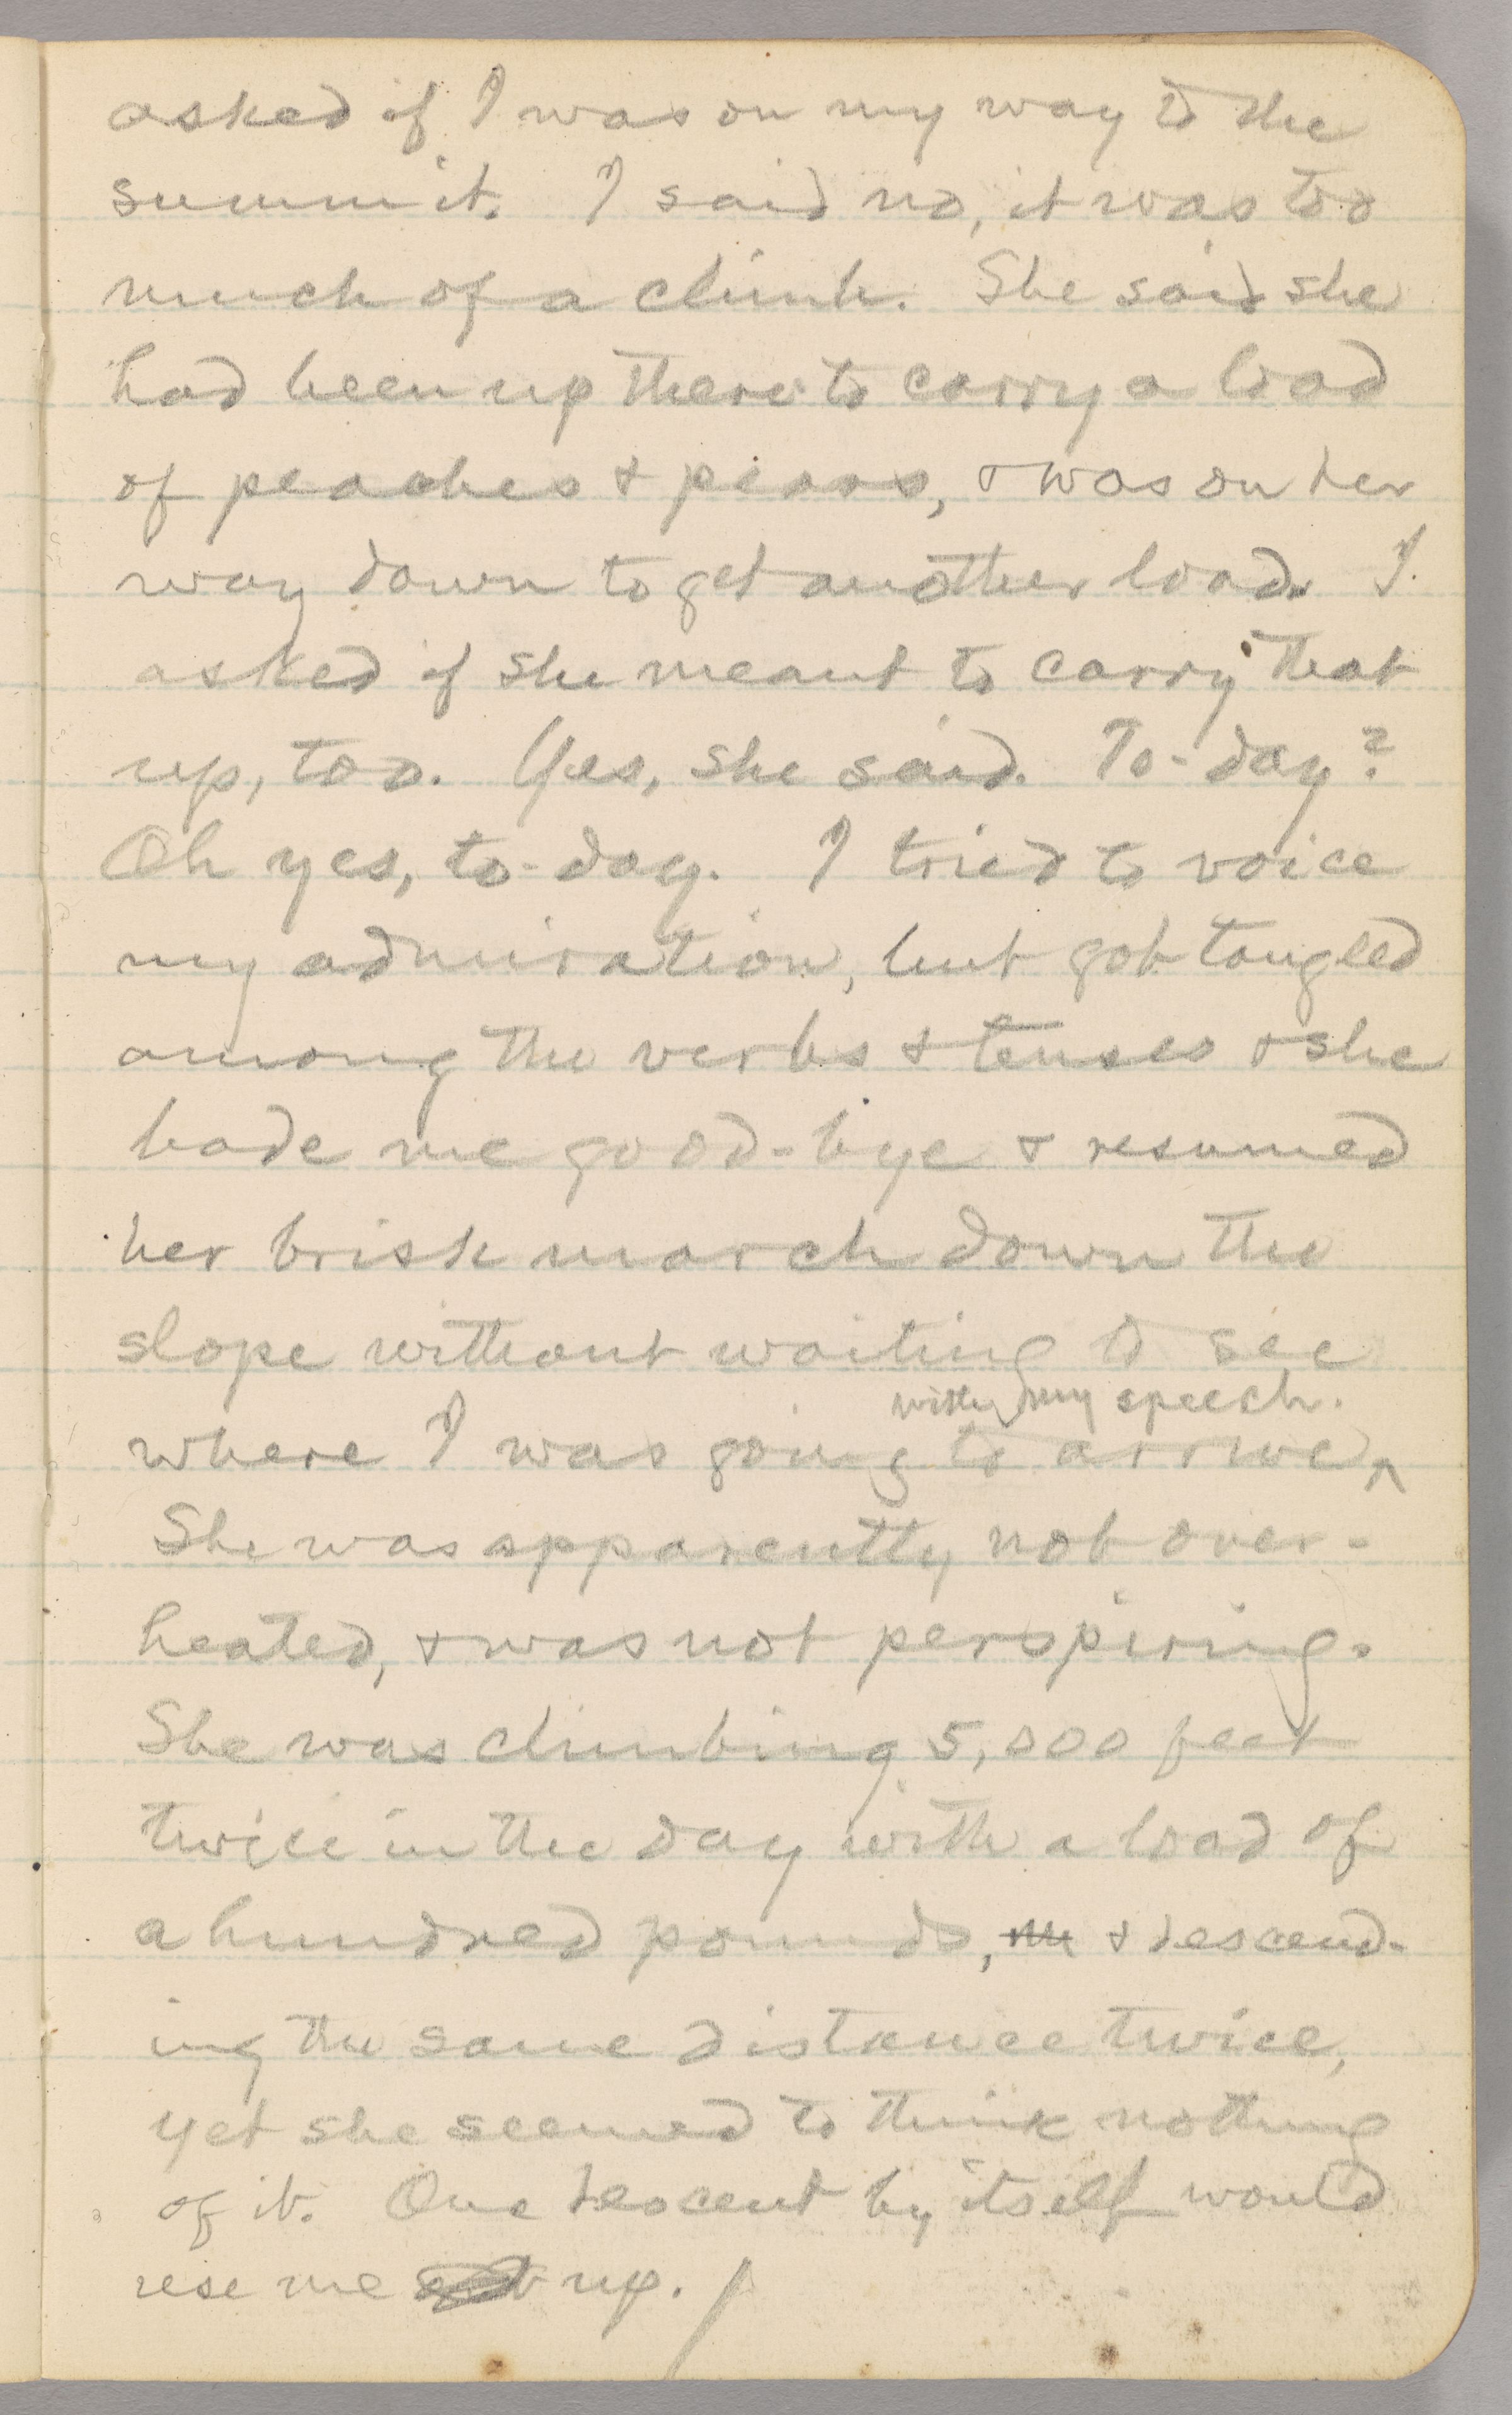 asked if I was on my way to the
summit. I said no, it was too
much of a climb. She said she
had been up there to carry a load
of peaches & pears, & was on her
way down to get another load. I
asked if she meant to carry that
up, too. Yes, she said. To-day?
Oh yes, to-day. I tried to voice
my admiration, but got tangled
among the verbs & tenses & she
bade me good-bye & resumed
her brisk march down the
slope without waiting to see
with my speech.
where I was going to arrive ^
She was apparently not over-
heated, & was not perspiring.
She was climbing 5,000 feet
twice in the day with a load of
a hundred pounds, & descend-
ing the same distance twice,
yet she seemed to think nothing
of it. One descent by itself would
use me up.